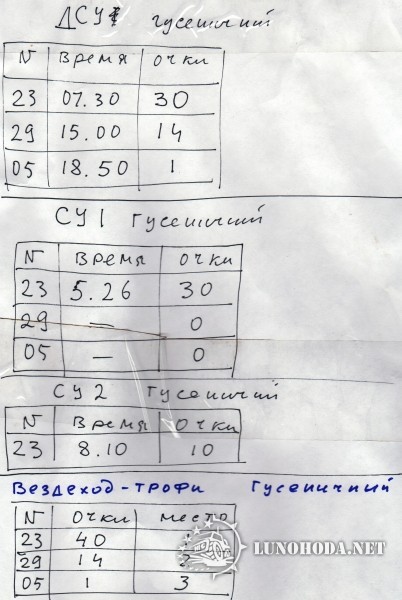 ДСУ гусеничний
N время очки
23 07.30 30
29 15.00 14
05 18.50 1
СУ1 гусеничий
N время очки
23 5.26 30
29 — 0
05 — 0
СУ2 гусеничий
N время очки
23 8.10 10
Вездеход-трофи Гусеничный
N очки место
23 40
29 14 2
05 1 3
LUNOHODA.NET